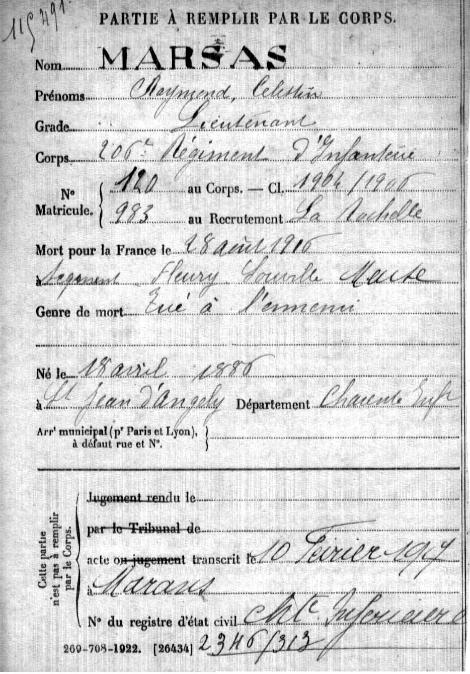 115 791.
PARTIE À REMPLIR PAR LE CORPS.
Nom MARSAS
Prénoms Raymond, Célestin
Grade Lieutenant
Corps 206e Régiment d'Infanterie
No Matricule. { 120 au Corps. — Cl. 1904/1906
983 au Recrutement La Rochelle
Mort pour la France le 28 août 1916
à Segment Fleury Souville Meuse
Genre de mort Tué à l'ennemi
Né le 18 avril 1886
à St Jean d'Angely Département Charente Infre
Arrt municipal (pr Paris et Lyon), à défaut rue et No. }
Cette partie n'est pas à remplir par le Corps.
Jugement rendu le
par le Tribunal de
acte ou jugement transcrit le 10 Février 1917
à Marans
No du registre d'état civil Chte Inférieure
269-708-1922. [26434] 2346/313